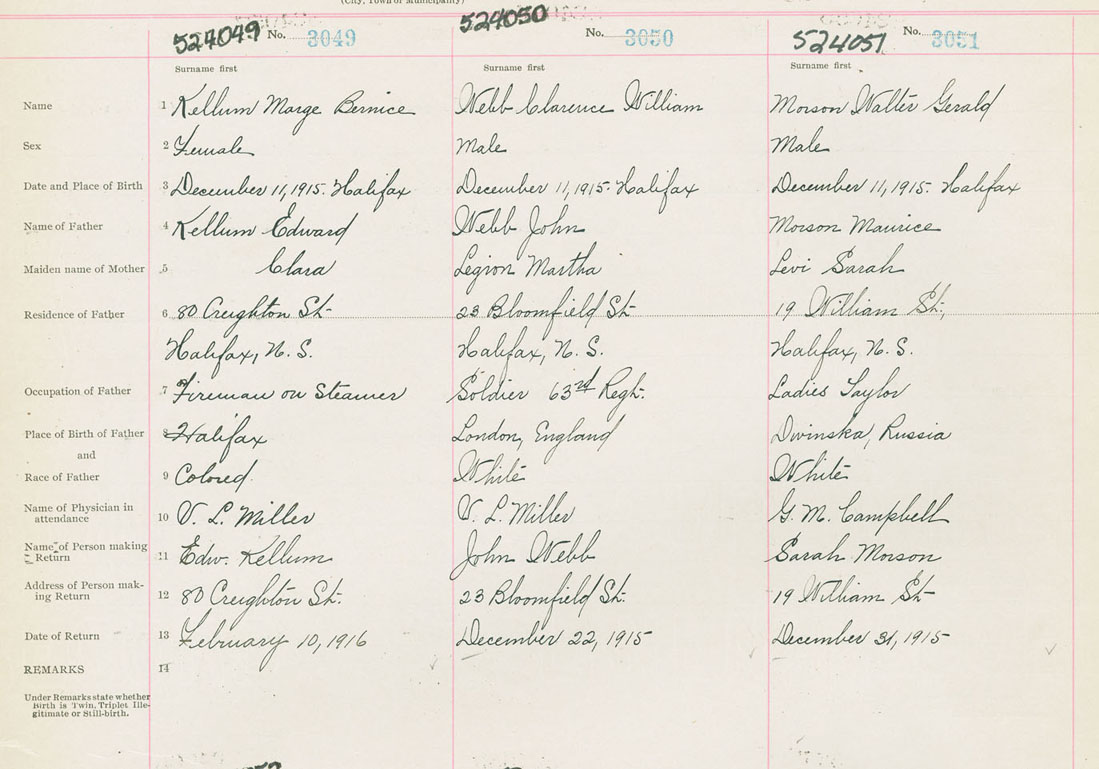 (City, Town or Municipality)
524049 No. 3049 524050 No. 3050 524051 No. 3051
Surname first Surname first Surname first
Name 1 Kellum Marge Bernice Webb Clarence William Morson Walter Gerald
Sex 2 Female Male Male
Date and Place of Birth 3 December 11, 1915. Halifax December 11, 1915. Halifax December 11, 1915. Halifax
Name of Father 4 Kellum Edward Webb John Morson Maurice
Maiden name of Mother 5 Clara Legion Martha Levi Sarah
Residence of Father 6 80 Creighton St- 23 Bloomfield St- 19 William St;
Halifax, N. S. Halifax, N. S. Halifax, N. S.
Occupation of Father 7 Fireman on Steamer Soldier 63rd Regt. Ladies Taylor
Place of Birth of Father 8 Halifax London, England Dvinska, Russia
and
Race of Father 9 Colored. White White
Name of Physician in
attendance 10 V. L. Miller V. L. Miller G. M. Campbell
Name of Person making
Return 11 Edw. Kellum John Webb Sarah Morson
Address of Person mak-
ing Return 12 80 Creighton St. 23 Bloomfield St. 19 William St-
Date of Return 13 February 10, 1916 December 22, 1915 December 31, 1915
REMARKS 14
Under Remarks state whether
Birth is Twin, Triplet Ille-
gitimate or Still-birth.